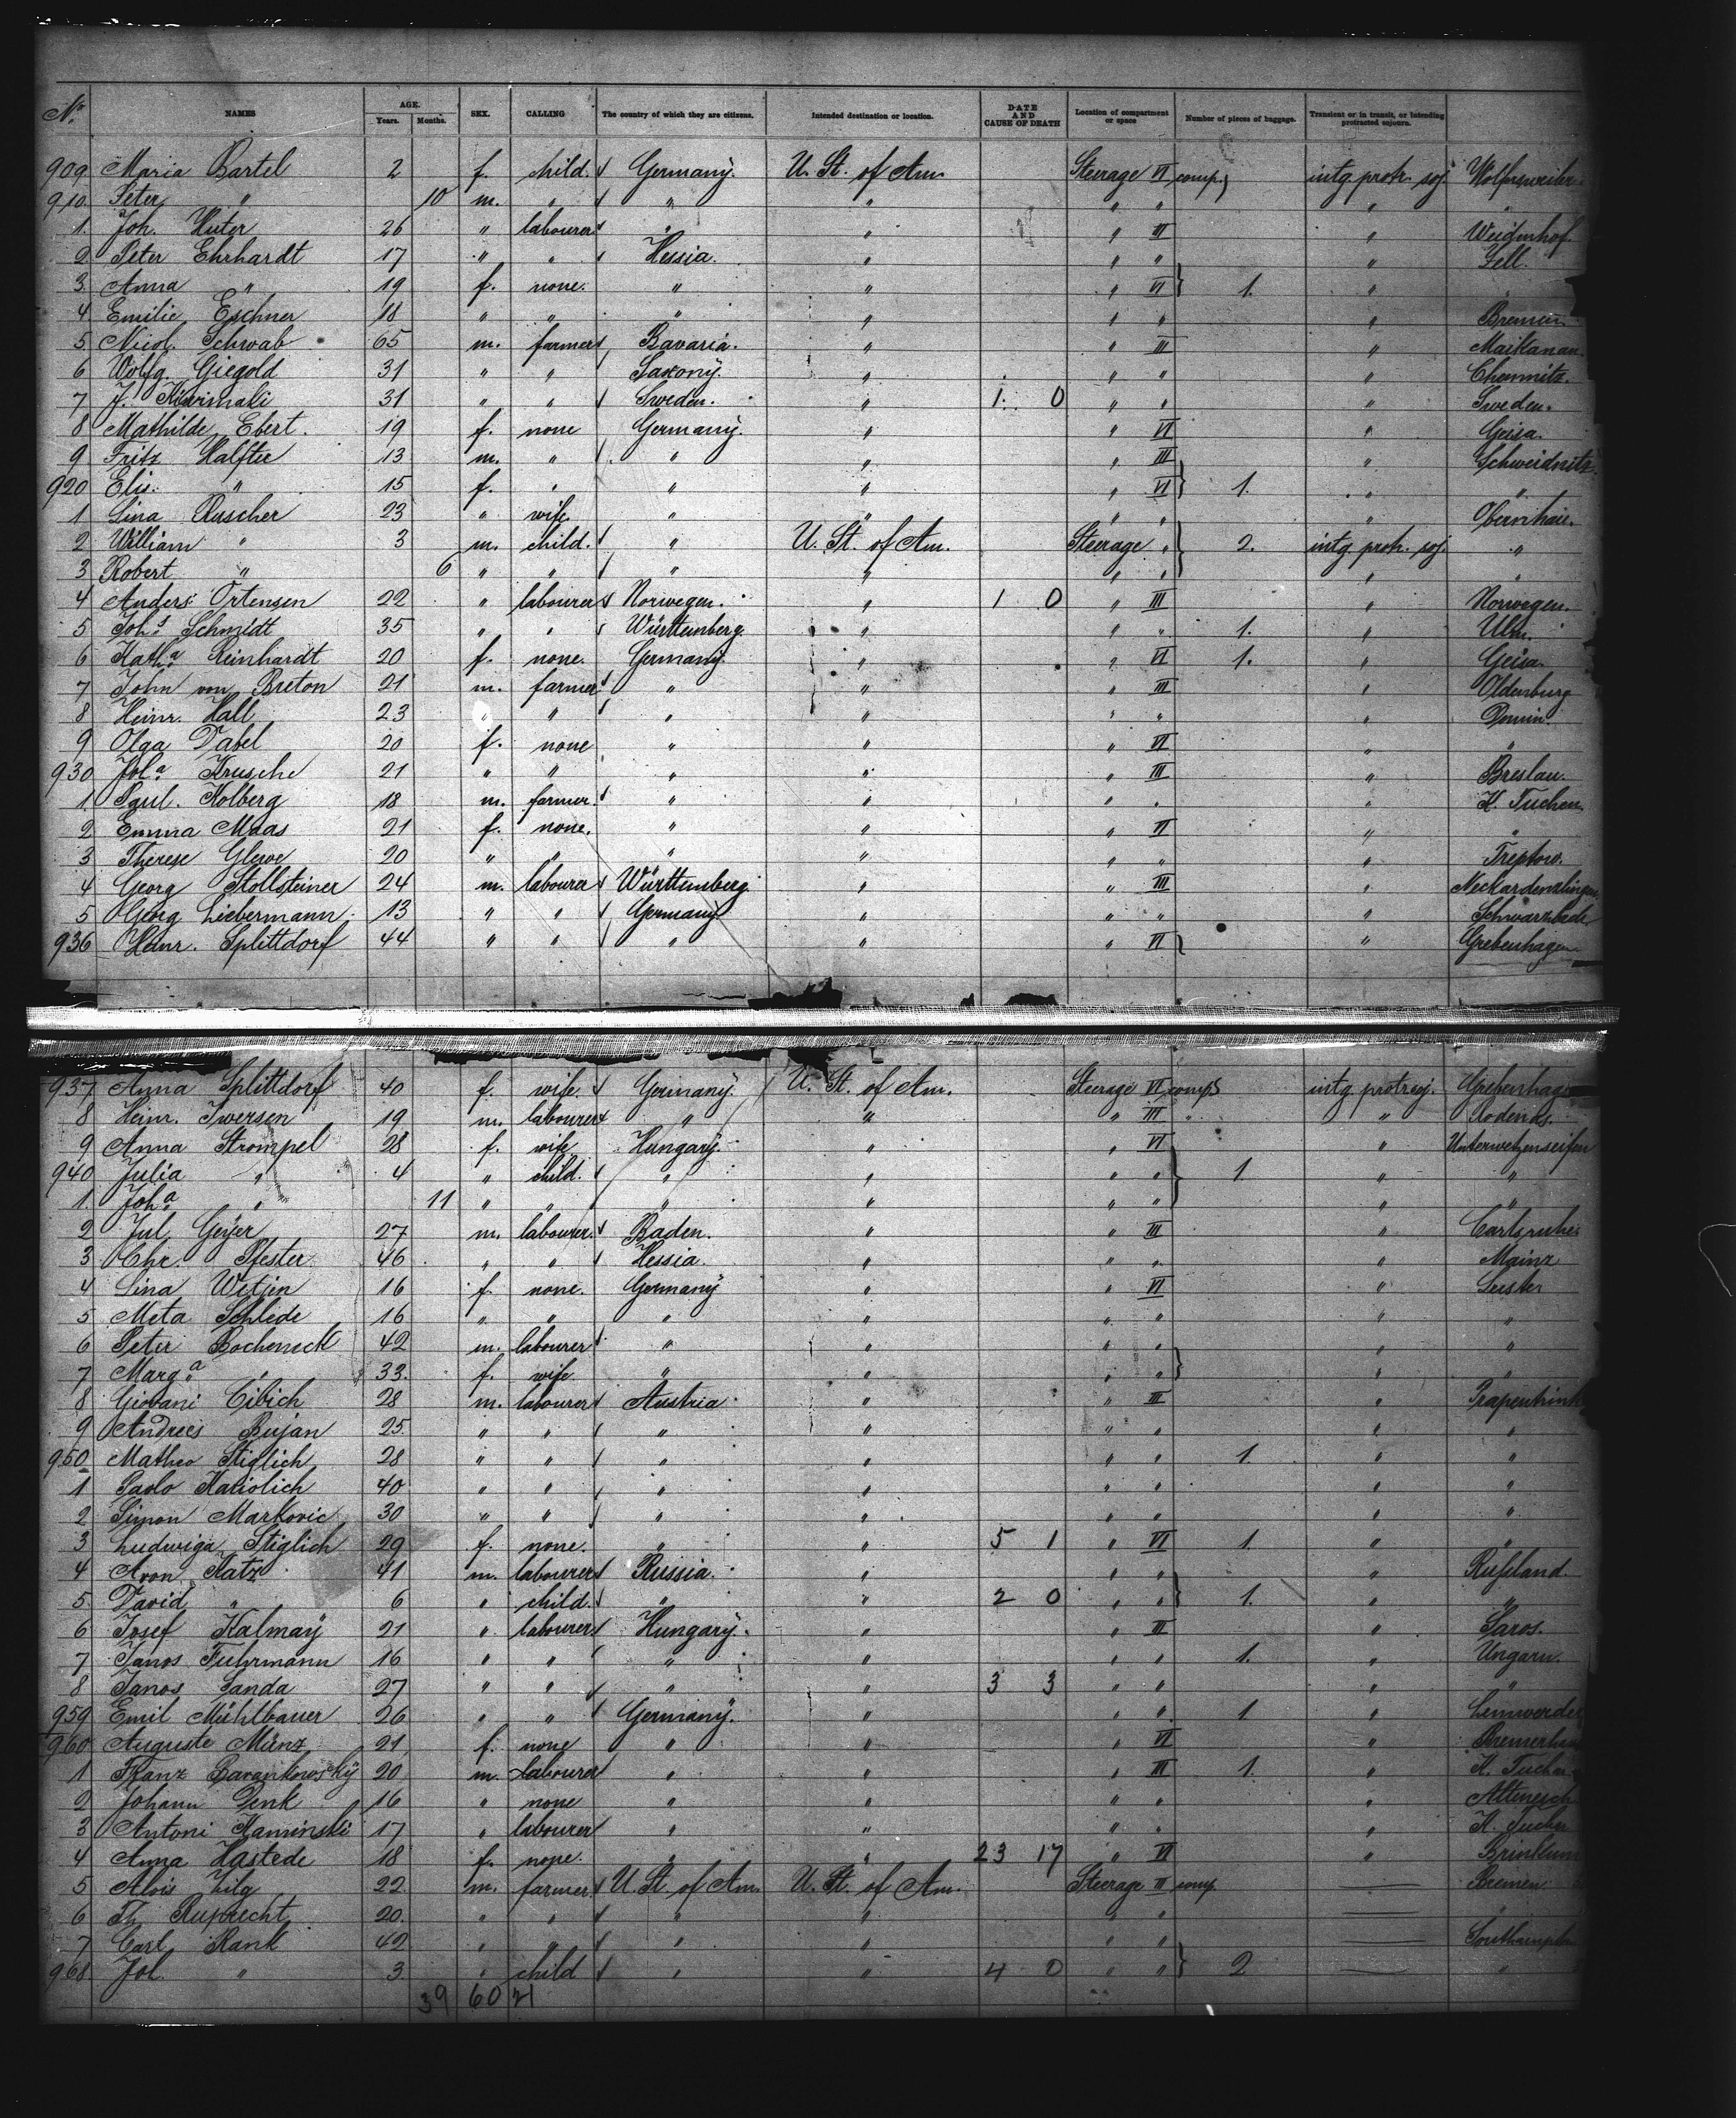 No. NAMES AGE. Years. Months. SEX. CALLING The country of which they are citizens. Intended destination or location. DATE AND CAUSE OF DEATH Location of compartment or space Number of pieces of baggage. Transient or in transit, or intending protracted sojourn.
909 Maria Bartel 2 f. child. Germany. U. St. of Am. Steerage VI comp. intg. protr. soj. Wolfersweiler
910 Peter " 10 m. " " " " " "
1. Joh. Huter 26 " labourer " " " III " Weidenhof.
2 Peter Ehrhardt 17 " " Hessia. " " " " Zell.
3. Anna " 19 f. none. " " " VI } 1. "
4 Emilie Eschner 18 " " " " " " " Bremen.
5 Nicol. Schwab 65 m. farmer Bavaria. " " III "
6 Wolfg. Giegold 31 " " Saxony. " " " Chemnitz.
7 J. 31 " " Sweden. " 1 0 " " " Sweden.
8 Mathilde Ebert. 19 f. none Germany. " " VI " Geisa.
9 Fritz Halfter 13 m. " " " " III " Schweidnitz
920 Elis. " 15 f. " " " " VI } 1. " "
1 Lina Ruscher 23 " wife. " " " " "
2 William " 3 m. child. " U. St. of Am. Steerage " } 2. intg. protr. soj. "
3 Robert " 6 " " " " " " " "
4 Anders Ortensen 22 " labourer Norwegen. " 1 0 " III " Norwegen.
5 Johs Schmidt 35 " " Württemberg. " " " 1. " Ulm.
6 Katha Reinhardt 20 f. none. Germany. " " VI 1. " Geisa.
7 John von Breton 21 m. farmer " " " III " Oldenburg
8 Heinr. Hall 23 " " " " " " "
9 Olga Dabel 20 f. none " " " VI " "
930 Joha Krusche 21 " " " " " III " Breslau.
1 Paul. Kolberg 18 m. farmer. " " " " K. Tuchen.
2 Emma Maas 21 f. none. " " " VI " "
3 Therese Glewe 20 " " " " " " " Treptow.
4 Georg Stollsteiner 24 m. labourer Württemberg. " " III "
5 Georg Liebermann. 13 " " Germany " " " " Schwarzbach
936 Heinr. Splittdorf 44 " " " " " VI } " Grebenhagen
937 Anna Splittdorf 40 f. wife. Germany. U. St. of Am. Steerage VI comp. intg. protr. soj. Grebenhagen
8 Heinr. Iwersen 19 m. labourer " " " III " "
9 Anna Strompel 28 f. wife Hungary. " " VI "
940 Julia " 4 " child. " " " " } 1. " "
1. Joha " 11 " " " " " " " "
2 Jul. Geÿer 27 m. labourer. Baden. " " III " Carlsruhe.
3 Chr. Pfester 46 " " Hessia. " " " " Mainz
4 Lina Wetjen 16 f. none. Germany " " VI "
5 Meta Schlede 16 " " " " " " " "
6 Peter 42 m. labourer " " " " " "
7 Marga " 33. f. wife. " " " " } " "
8 Giovani Cibich 28 m. labourer Austria " " III "
9 Andrees Bujan 25. " " " " " " " "
950 Matheo Stiglich 28 " " " " " " 1. " "
1 Paolo 40 " " " " " " " "
2 Simon Markovic 30 " " " " " " " "
3 Ludwiga Stiglich 29 f. none. " " 5 1 " VI 1. " "
4 Aron Katz 41 m. labourer Russia. " " " " Rußland
5. David " 6 " child. " " 2 0 " " } 1. " "
6 Josef Kalmaÿ 21 " labourer Hungary. " " III " Saros.
7 Janos Fuhrmann 16 " " " " " " 1. " Ungarn.
8 Janos Sanda 27 " " " " 3 3 " " " "
959 Emil Mühlbauer 26 " " Germany. " " " 1 " Lemwerder
960 Auguste Münz 21 f. none " " " VI " Bremerhav
1 Franz Barankowsky 20 m. labourer " " " III 1. " K. Tuchen
2 Johann Denk 16 " none " " " " " Altenesch
3 Antoni Kaminski 17 " labourer " " " " " K. Tuchen
4 Anna Hastede 18 f. none. " " 23 17 " VI " Brinkum
5 Alois Zilg 22 m. farmer U. St. of Am. U. St. of Am. Steerage III comp. — Bremen
6 Th. Ruprecht 20. " " " " " " — "
7 Carl Rank 42 " " " " " " — Southampton
968 Joh. " 3 " child " " 4 0 " " } 2 — "
39 60 21